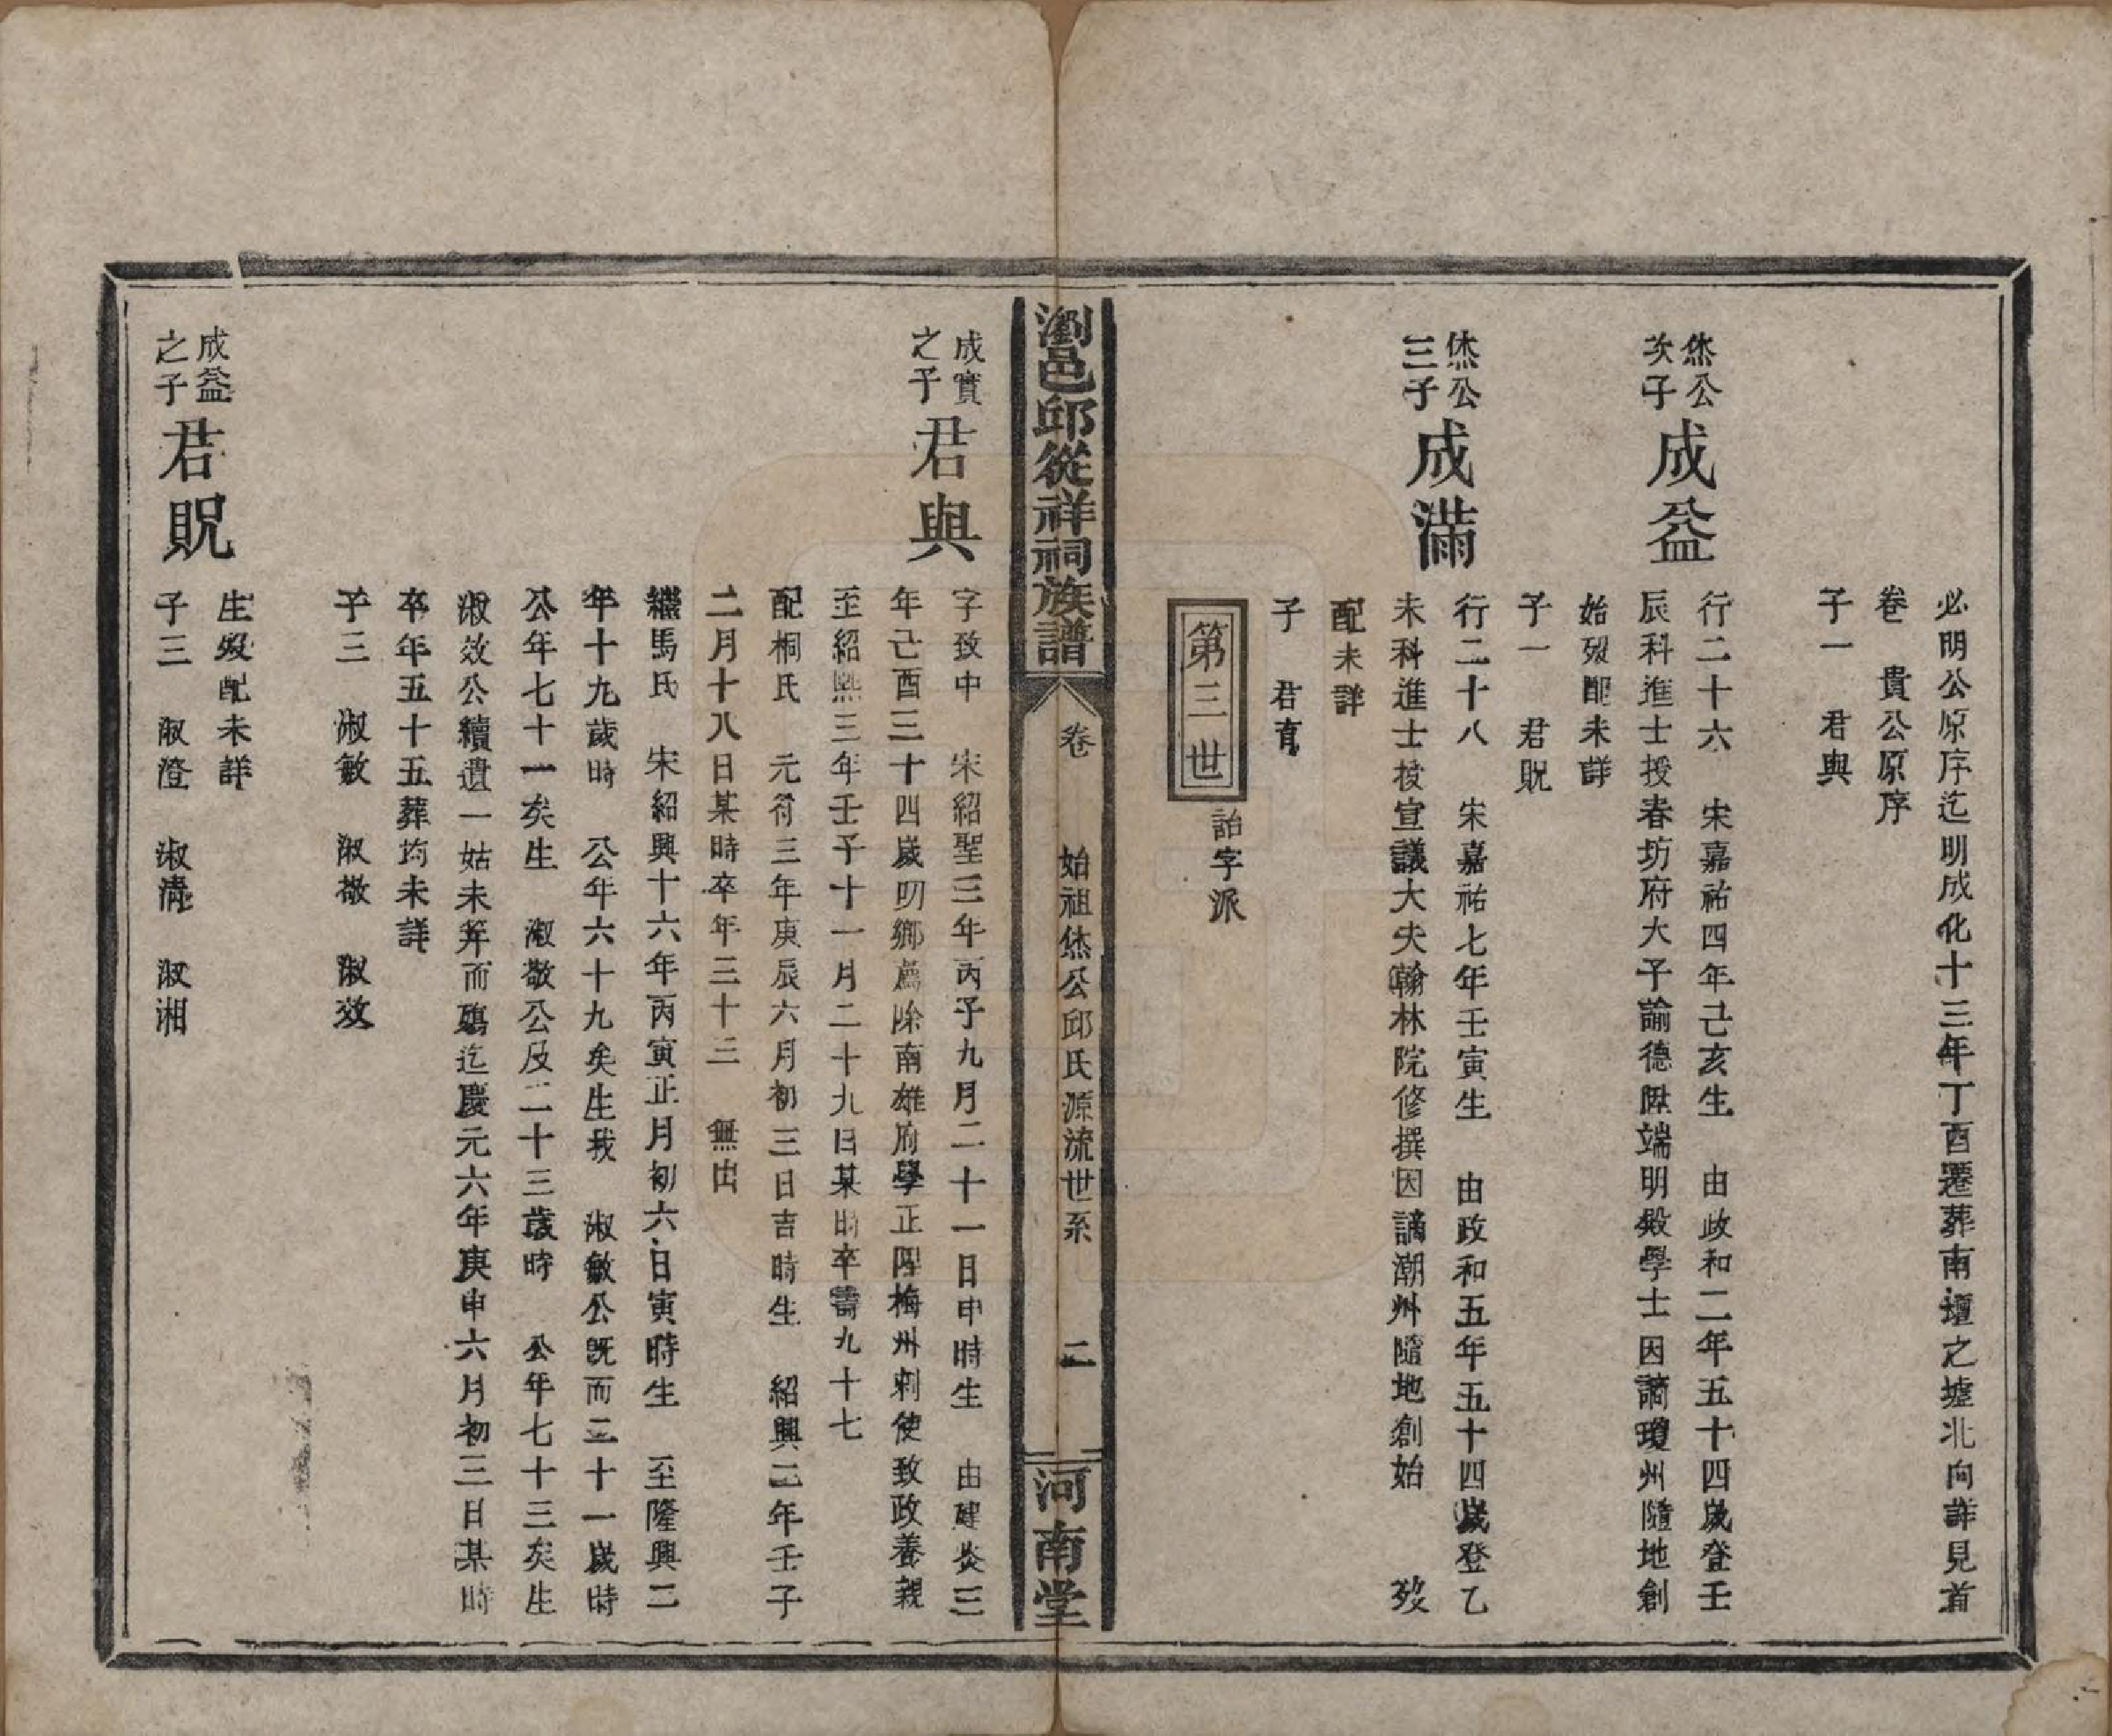 必明公原序迄明成化十三年丁酉遷葬南壇之墟北向詳見首
卷 貴公原序
子一 君與
烋公次子 成益
行二十六 宋嘉祐四年己亥生 由政和二年五十四歲登壬
辰科進士授春坊府大子諭德陞端明殿學士因謫瓊州隨地創
始歿配未詳
子一 君貺
烋公三子 成滿
行二十八 宋嘉祐七年壬寅生 由政和五年五十四歲登乙
未科進士授宣議大夫翰林院修撰因謫潮州隨地創始 歿
配未詳
子 君有
第三世 詒字派
瀏邑邱從祥祠族譜 卷 始祖烋公邱氏源流世系 二 河南堂
成實之子 君與
字致中 宋紹聖三年丙子九月二十一日申時生 由建炎三
年己酉三十四歲明鄉薦除南雄府學正陞梅州刺使致政養親
至紹熙三年壬子十一月二十九日某時卒壽九十七
配桐氏 元符三年庚辰六月初三日吉時生 紹興二年壬子
二月十八日某時卒年三十三 無出
繼馬氏 宋紹興十六年丙寅正月初六日寅時生 至隆興二
年十九歲時 公年六十九矣生我 淑敏公旣而二十一歲時
公年七十一矣生 淑敬公及二十三歲時 公年七十三矣生
淑效公續遺一姑未筓而殤迄慶元六年庚申六月初三日某時
卒年五十五葬均未詳
子三 淑敏 淑敬 淑效
成益之子 君貺
生歿配未詳
子三 淑澄 淑淸 淑湘